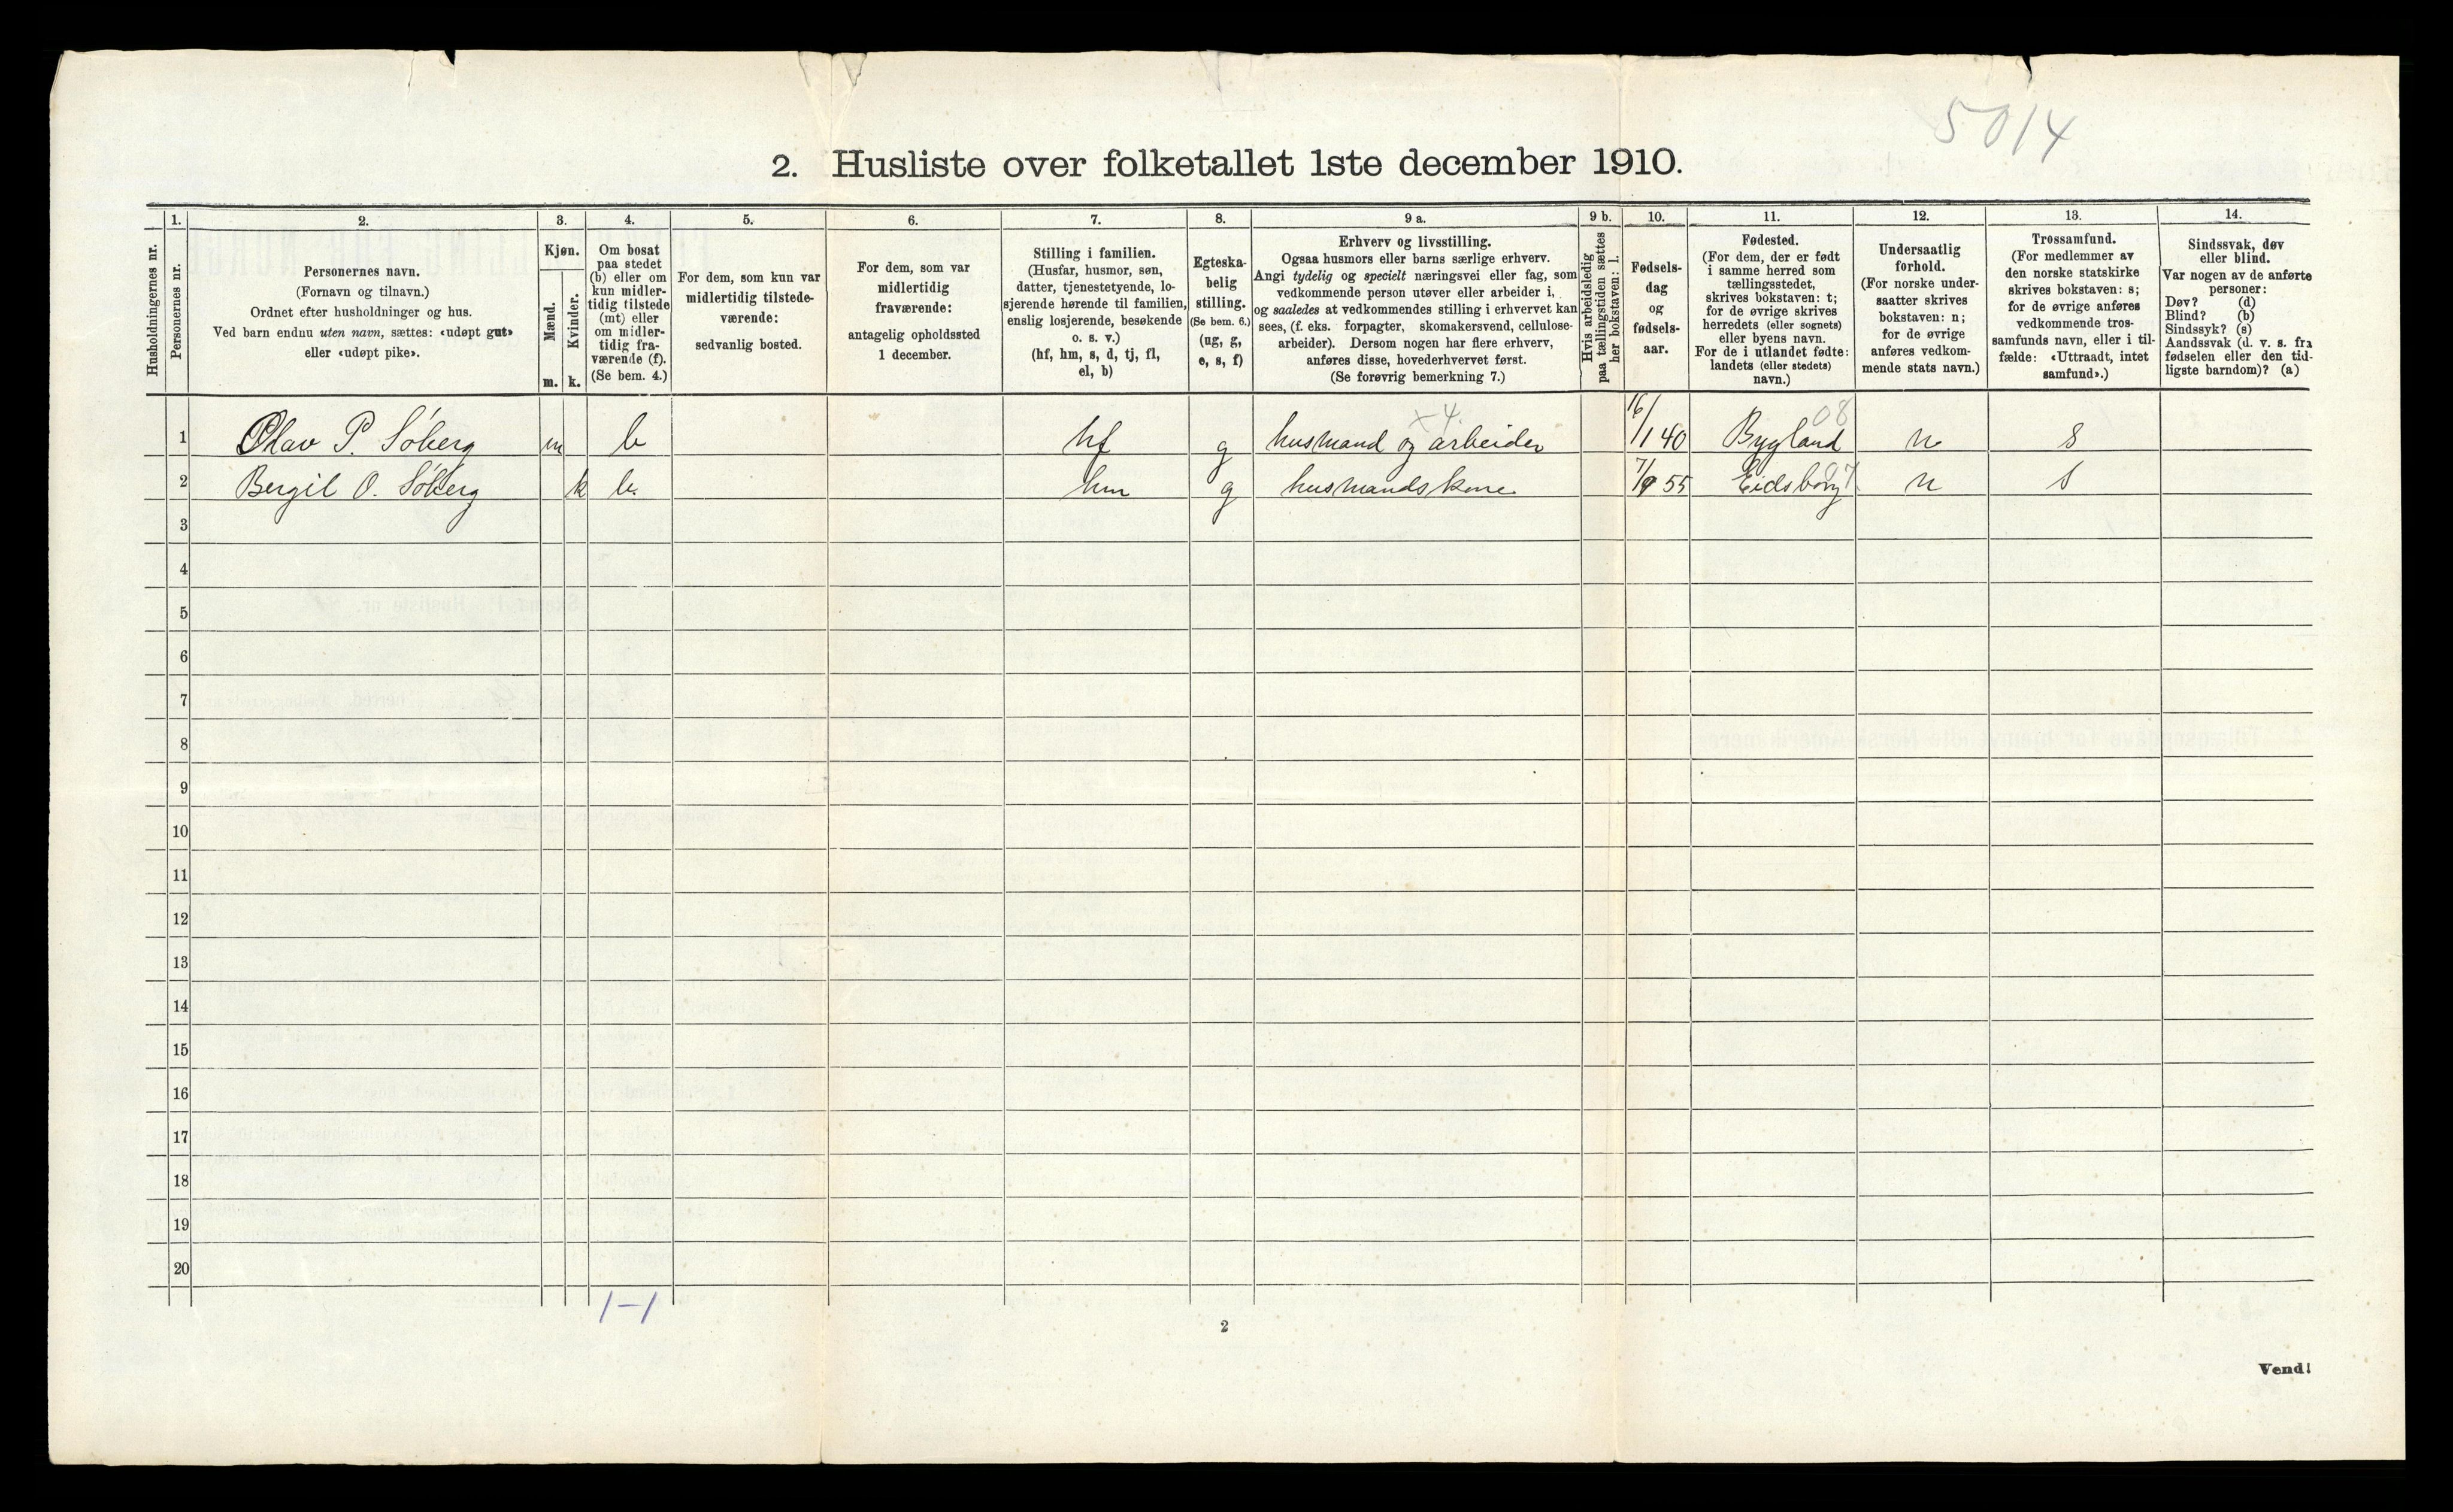 5014
2. Husliste over folketallet 1ste december 1910.
Husholdningernes nr.
1.
Personernes nr.
2.
Personernes navn.
(Fornavn og tilnavn.)
Ordnet efter husholdninger og hus.
Ved barn endnu uten navn, sættes: «udøpt gut»
eller «udøpt pike».
3.
Kjøn.
Mænd.
Kvinder.
m. k.
4.
Om bosat
paa stedet
(b) eller om
kun midler-
tidig tilstede
(mt) eller
om midler-
tidig fra-
værende (f).
(Se bem. 4.)
5.
For dem, som kun var
midlertidig tilstede-
værende:
sedvanlig bosted.
6.
For dem, som var
midlertidig
fraværende:
antagelig opholdssted
1 december.
7.
Stilling i familien.
(Husfar, husmor, søn,
datter, tjenestetyende, lo-
sjerende hørende til familien,
enslig losjerende, besøkende
o. s. v.)
(hf, hm, s, d, tj, fl,
el, b)
8.
Egteska-
belig
stilling.
(Se bem. 6.)
(ug, g,
e, s, f)
9 a.
Erhverv og livsstilling.
Ogsaa husmors eller barns særlige erhverv.
Angi tydelig og specielt næringsvei eller fag, som
vedkommende person utøver eller arbeider i,
og saaledes at vedkommendes stilling i erhvervet kan
sees, (f. eks. forpagter, skomakersvend, cellulose-
arbeider). Dersom nogen har flere erhverv,
anføres disse, hovederhvervet først.
(Se forøvrig bemerkning 7.)
9 b.
Hvis arbeidsledig
paa tællingstiden sættes
her bokstaven: l.
10.
Fødsels-
dag
og
fødsels-
aar.
11.
Fødested.
(For dem, der er født
i samme herred som
tællingsstedet,
skrives bokstaven: t;
for de øvrige skrives
herredets (eller sognets)
eller byens navn.
For de i utlandet fødte:
landets (eller stedets)
navn.)
12.
Undersaatlig
forhold.
(For norske under-
saatter skrives
bokstaven: n;
for de øvrige
anføres vedkom-
mende stats navn.)
13.
Trossamfund.
(For medlemmer av
den norske statskirke
skrives bokstaven: s;
for de øvrige anføres
vedkommende tros-
samfunds navn, eller i til-
fælde: «Uttraadt, intet
samfund».)
14.
Sindssvak, døv
eller blind.
Var nogen av de anførte
personer:
Døv? (d)
Blind? (b)
Sindssyk? (s)
Aandssvak (d. v. s. fra
fødselen eller den tid-
ligste barndom)? (a)
x 4. 08
1 Olav P. Søberg m b hf g husmand og arbeider 16/1 40 Bygland n s
2 Bergit O. Søberg k b. hm g husmandskone 7/9 55 Eidsborg n s
3
4
5
6
7
8
9
10
11
12
13
14
15
16
17
18
19
20
1-1
2
Vend!